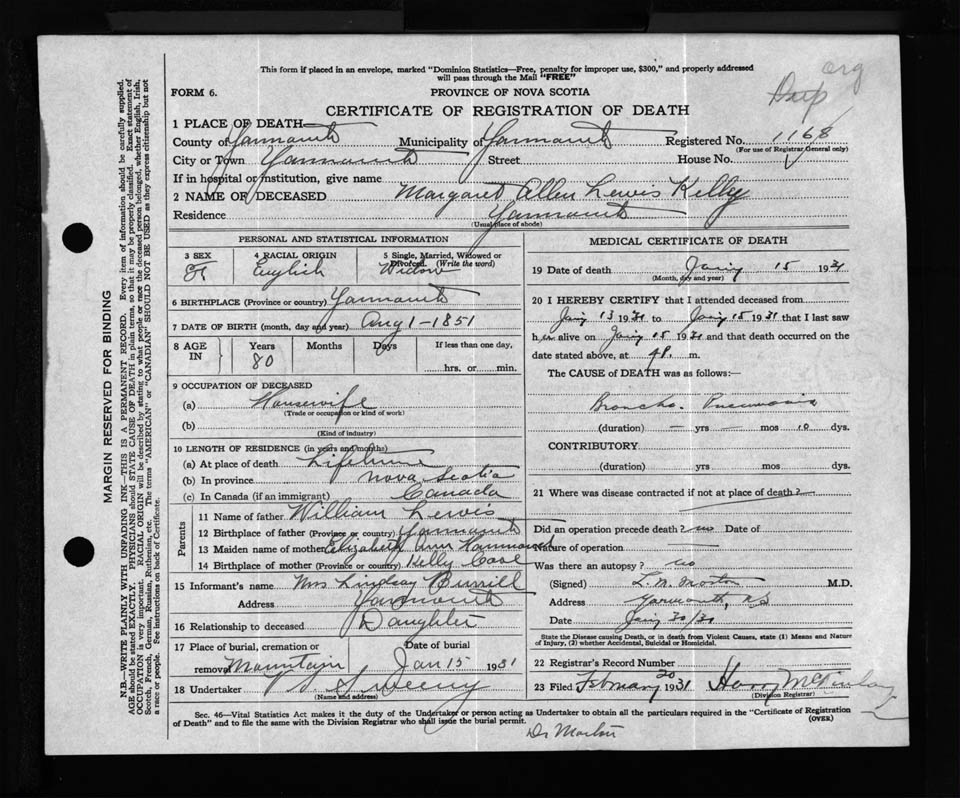 This form if placed in an envelope, marked "Dominion Statistics—Free, penalty for improper use, $300," and properly addressed
will pass through the Mail "FREE"
org
Dup
FORM 6.
PROVINCE OF NOVA SCOTIA
CERTIFICATE OF REGISTRATION OF DEATH
1 PLACE OF DEATH
County of Yarmouth Municipality of Yarmouth Registered No. 1168
(For use of Registrar General only)
City or Town Yarmouth Street House No.
If in hospital or institution, give name
2 NAME OF DECEASED Margaret Allen Lewis Kelly
Residence Yarmouth
(Usual place of abode)
PERSONAL AND STATISTICAL INFORMATION
3 SEX
4 RACIAL ORIGIN English
5 Single, Married, Widowed or Divorced. (Write the word) Widow
6 BIRTHPLACE (Province or country) Yarmouth
7 DATE OF BIRTH (month, day and year) Aug 1-1851
8 AGE IN Years Months Days If less than one day,
80 hrs. or min.
9 OCCUPATION OF DECEASED
(a) Housewife
(Trade or occupation or kind of work)
(b)
(Kind of industry)
10 LENGTH OF RESIDENCE (in years and months)
(a) At place of death Lifetime
(b) In province Nova Scotia
(c) In Canada (if an immigrant) Canada
Parents
11 Name of father William Lewis
12 Birthplace of father (Province or country) Yarmouth
13 Maiden name of mother Elizabeth Ann
14 Birthplace of mother (Province or country) Kelly Cove
15 Informant's name Mrs Lindsay Burrill
Address Yarmouth
16 Relationship to deceased Daughter
17 Place of burial, cremation or removal Mountain Date of burial Jan 15 1931
18 Undertaker Sweeny
(Name and address)
MEDICAL CERTIFICATE OF DEATH
19 Date of death Jany 15 1931
(Month, day and year)
20 I HEREBY CERTIFY that I attended deceased from
Jany 13 1931 to Jany 15 1931 that I last saw
her alive on Jany 15 1931 and that death occurred on the
date stated above, at 4P. m.
The CAUSE of DEATH was as follows:—
Broncho. Pneumonia
(duration) — yrs — mos 10 dys.
CONTRIBUTORY
(duration) yrs. mos. dys.
21 Where was disease contracted if not at place of death?
Did an operation precede death? no Date of
Nature of operation
Was there an autopsy? no
(Signed) L. M. Morton M.D.
Address Yarmouth, N.S
Date Jany 30/31
State the Disease causing Death, or in death from Violent Causes, state (1) Means and Nature
of Injury, (2) whether Accidental, Suicidal or Homicidal.
22 Registrar's Record Number
23 Filed February 20 1931 Harry McKinlay
(Division Registrar)
Sec. 46—Vital Statistics Act makes it the duty of the Undertaker or person acting as Undertaker to obtain all the particulars required in the "Certificate of Registration
of Death" and to file the same with the Division Registrar who shall issue the burial permit.
(OVER)
Dr Morton
MARGIN RESERVED FOR BINDING
N.B.—WRITE PLAINLY WITH UNFADING INK—THIS IS A PERMANENT RECORD. Every item of information should be carefully supplied.
AGE should be stated EXACTLY. PHYSICIANS should STATE CAUSE OF DEATH in plain terms, so that it may be properly classified. Exact statement of
OCCUPATION is very important. RACIAL ORIGIN will be described by stating to what people or race the deceased person belonged, whether English, Irish,
Scotch, French, German, Russian, Ruthenian, etc. The terms "AMERICAN" or "CANADIAN" SHOULD NOT BE USED as they express citizenship but not
a race or people. See instructions on back of Certificate.